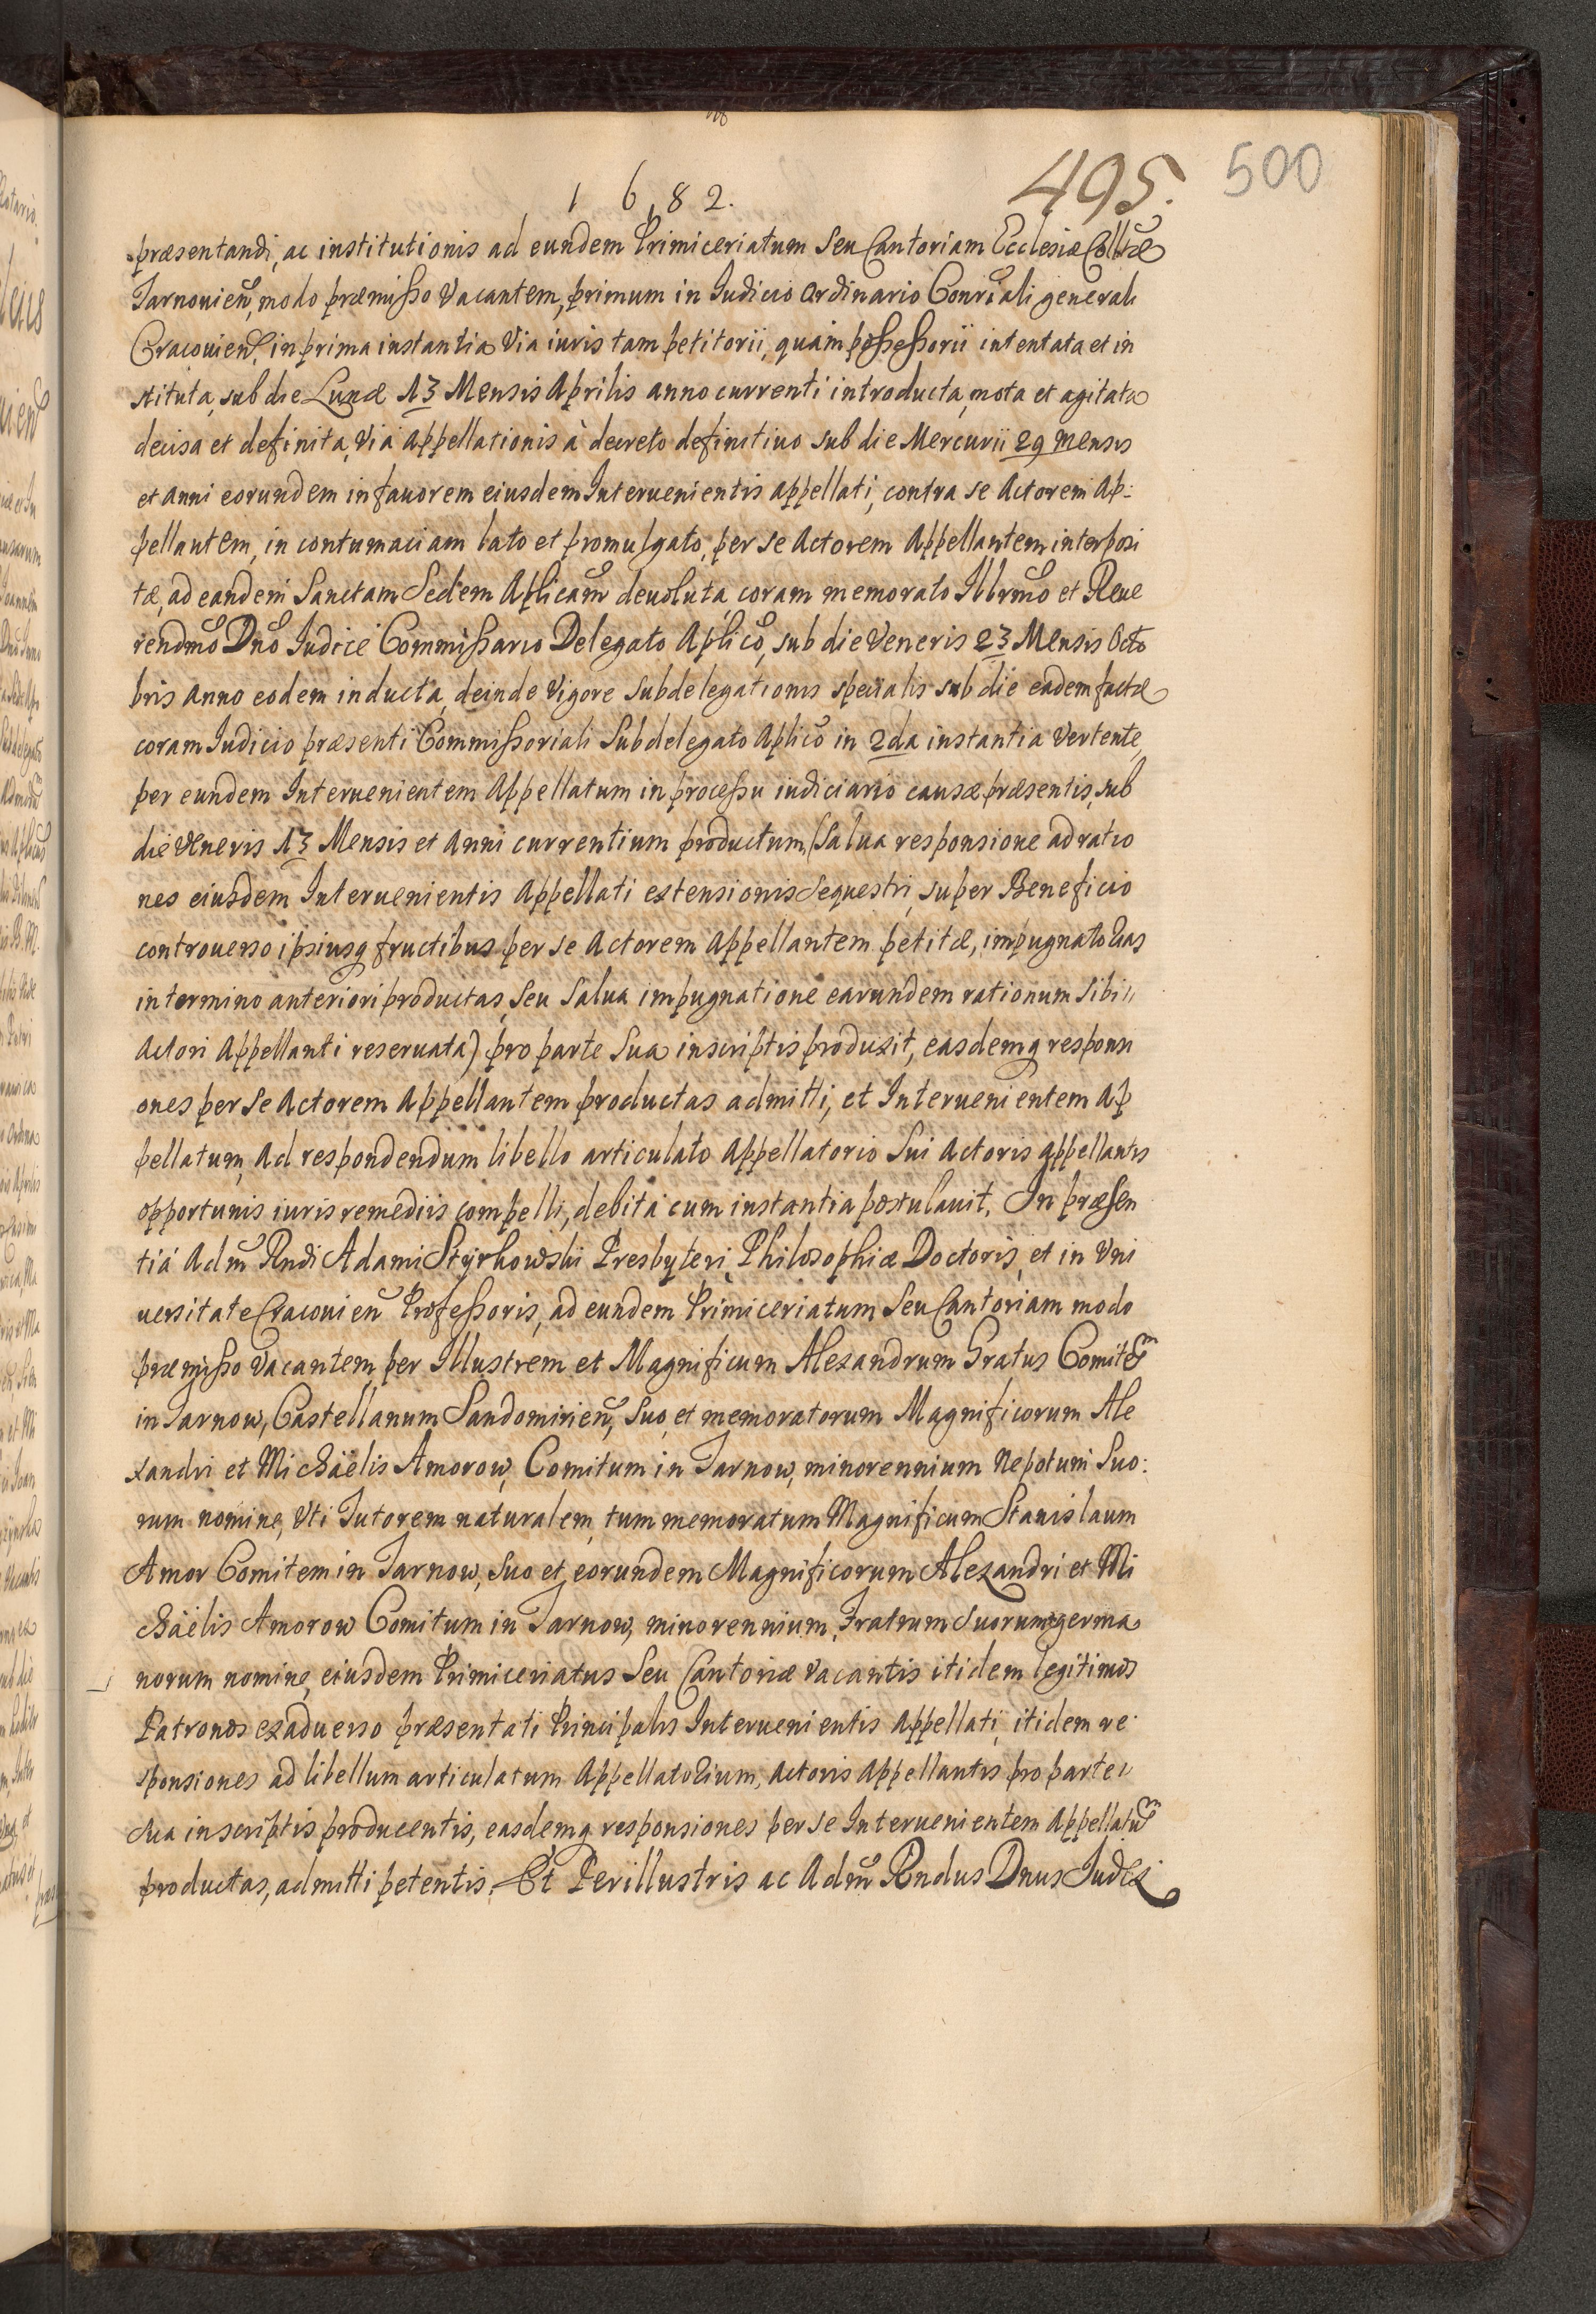 1682.
495.
500
præsentandi, ac institutionis ad eundem Primiceriatum Seu Cantoriam Ecclesiæ Colltæ
Tarnouien, modo præmisso Vacantem, primum in Iudicio Ordinario Consriali generali
Cracouien, in prima instantia Via iuris tam petitorii, quam possessorii intentata et in
stituta, sub die Lunæ 13 Mensis Aprilis anno currenti introducta, mota et agitata
decisa et definita, Via Appellationis à decreto definitiuo sub die Mercurii 29 Mensis
et anni eorundem in fauorem eiusdem Interuenientis appellati, contra se Actorem Ap:
pellantem, in contumaciam lato et promulgato, per se Actorem Appellantem interposi
tæ, ad eandem Sanctam Sedem Aplicam deuoluta, coram memorato Illrmo et Reue
rendmo Dno Iudice Commissario Delegato Aplico, sub die Veneris 23 Mensis Octo
bris anno eodem inducta, deinde Vigore Subdelegationis specialis sub die eadem factæ
coram Iudicio præsenti Commissoriali Subdelegato Aplico in 2da instantia Vertente,
per eundem Interuenientem Appellatum in processu iudiciario causæ præsentis, sub
die Veneris 13 Mensis et Anni currentium productum, (Salua responsione ad ratio
nes eiusdem Interuenientis Appellati extensionis Sequestri, super Beneficio
controuerso ipsiusq fructibus per se Actorem Appellantem petitæ, impugnatorias
in termino anteriori productas, Seu Salua impugnatione earundem rationum Sibi
Actori Appellanti reseruata) pro parte Sua in scriptis produxit, easdemq responsi
ones per Se Actorem Appellantem productas admitti, et Interuenientem Ap
pellatum, Ad respondendum libello articulato Appellatorio Sui Actoris Appellantis
opportunis iuris remediis compelli, debita cum instantia postulauit. In præsen
tia Adm Rndi Adami Styrkowski Presbyteri, Philosophiæ Doctoris, et in Vni
uersitate Cracouien Professoris, ad eundem Primiceriatum Seu Cantoriam modo
præmisso Vacantem, per Illustrem et Magnificum Alexandrum Gratus Comitem
in Tarnow, Castellanum Sandomirien, Suo et memoratorum Magnificorum Ale
xandri et Michäelis Amorow, Comitum in Tarnow, minorennium Nepotum Suo:
rum nomine, Vti Tutorem naturalem, tum memoratum Magnificum Stanislaum
Amor Comitem in Tarnow, Suo et eorundem Magnificorum Alexandri et Mi
chäelis Amorow Comitum in Tarnow, minorennium, Fratrum Suorumq germa
norum nomine, eiusdem Primiceriatus Seu Cantoriæ Vacantis itidem legitimos
Patronos ex aduerso præsentati Principalis Interuenientis Appellati, itidem re
sponsiones ad libellum articulatum Appellatorium, Actoris Appellantis pro parte
Sua in scriptis producentis, easdemq responsiones per se Interuenientem Appellatum
productas, admitti petentis. Et Perillustris ac Adm Rndus Dnus Iudex